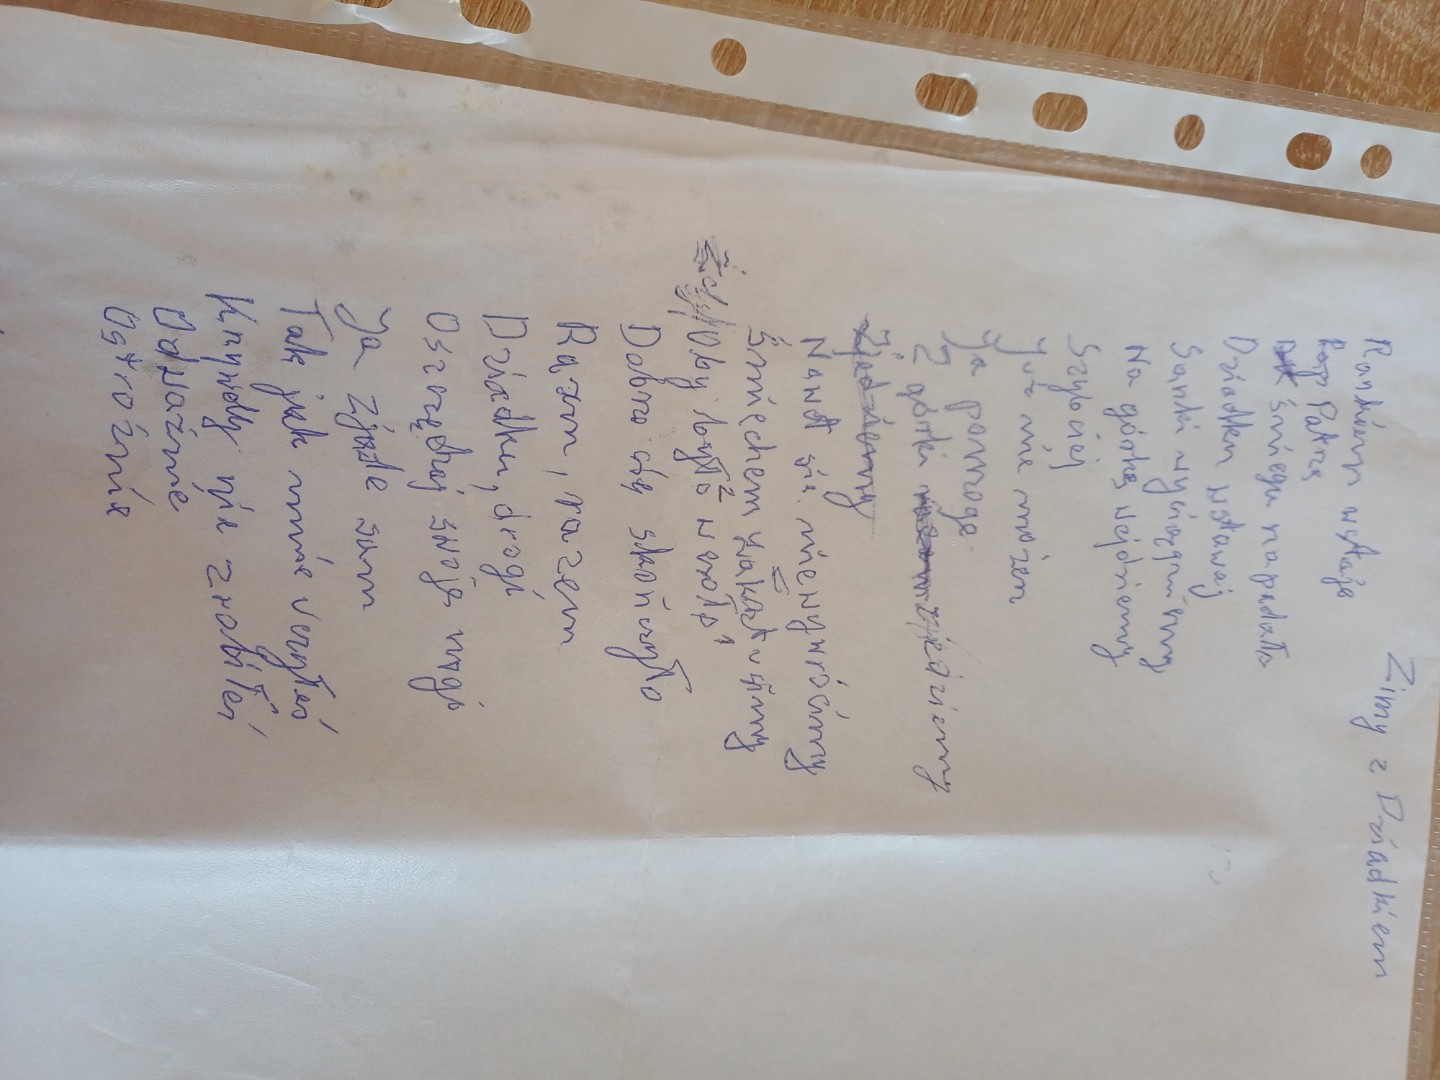 Zimy z Dziadkiem
Rankiem wstaję
Patrzę
śniegu napadało
Dziadku wstawaj
Sanki wyciągniemy
Na górkę wejdziemy
Szybciej
Już nie mogę
Ja pomogę
Z górki zjedziemy
Zjedziemy
Nawet się nie wywrócimy
Śmiechem
Oby było² wesoło¹
Dobro się skończyło
Razem, razem
Dziadku, drogi
Oszczędzaj swoje nogi
Ja zjadę sam
Tak jak mnie uczyłeś
Krzywdy nie zrobiłeś
Odważnie
Ostrożnie